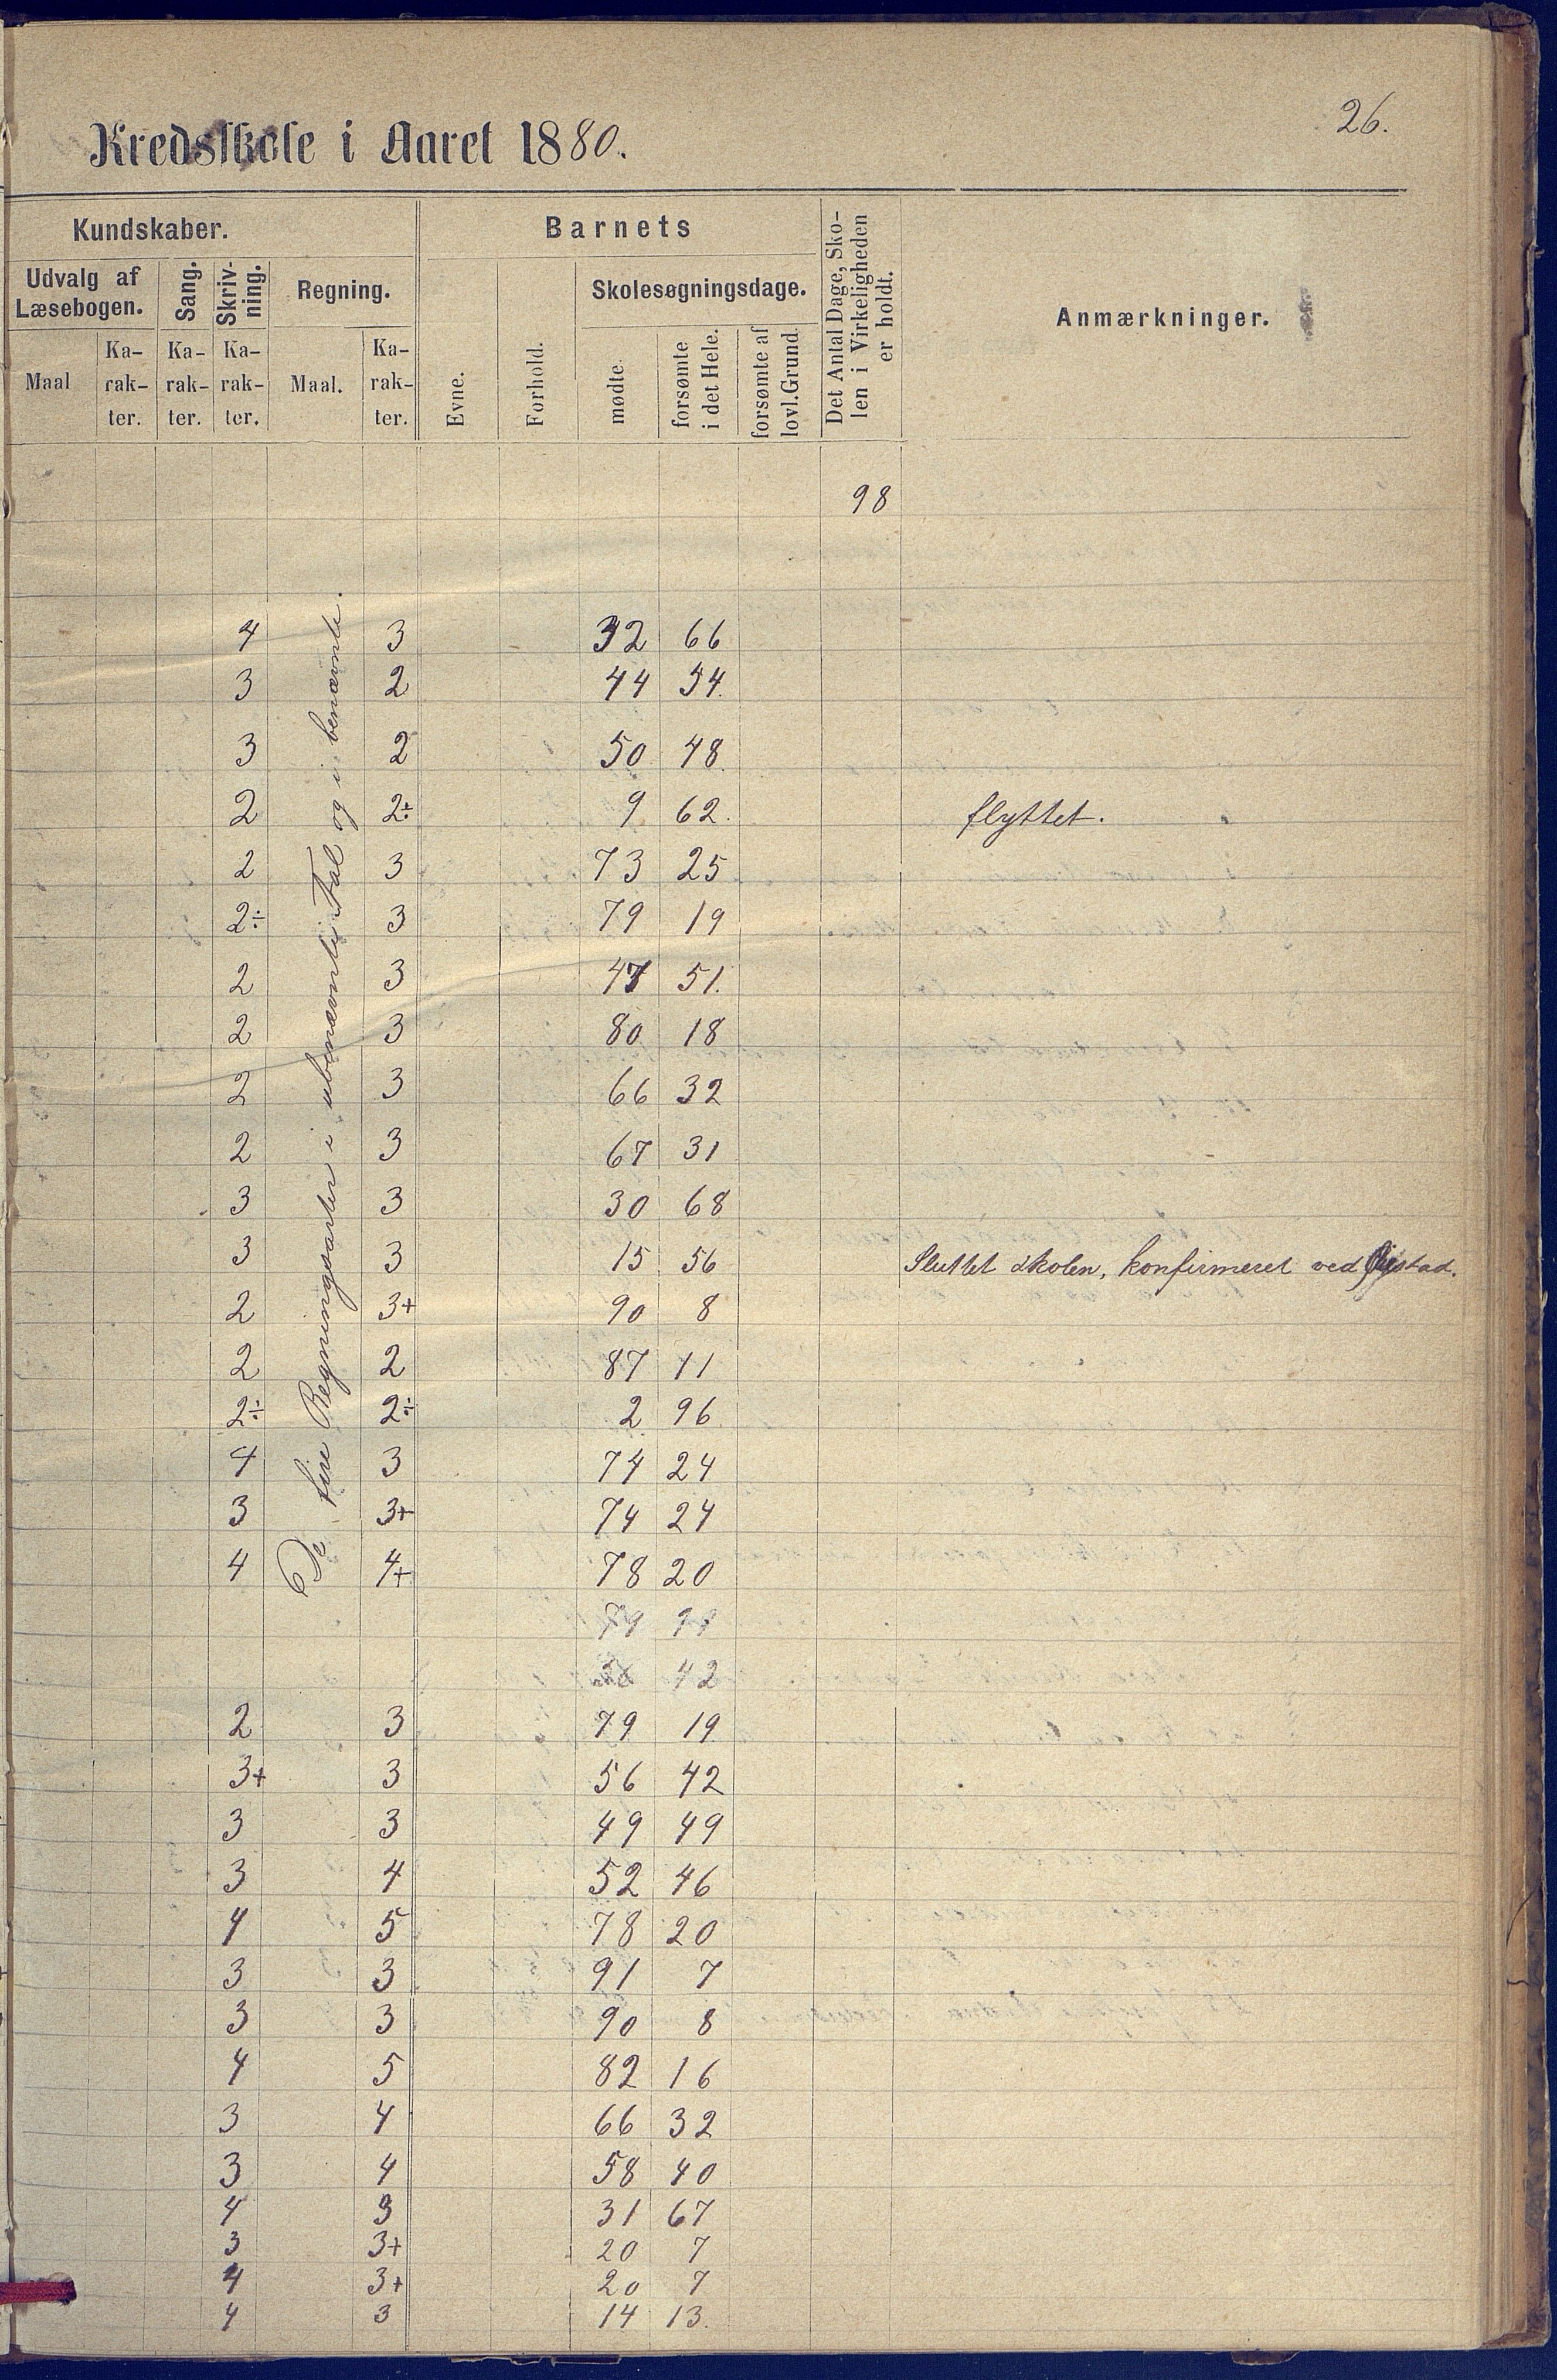 26.
Kredsskole i Aaret 1880.
Kundskaber.
Barnets
Det Antal Dage, Sko-
len i Virkeligheden
er holdt.
Anmærkninger.
Udvalg af
Læsebogen.
Sang.
Skriv-
ning.
Regning.
Evne.
Forhold.
Skolesøgningsdage.
Maal
Ka-
rak-
ter.
Ka-
rak-
ter.
Ka-
rak-
ter.
Maal.
Ka-
rak-
ter.
mødte
forsømte
i det Hele.
forsømte af
lovl. Grund
98
De fire Regningsarter i ubenævnte Tal og i benævnte.
4 3 32 66
3 2 44 54.
3 2 50 48.
2 2÷ 9 62. flyttet.
2 3 73 25
2÷ 3 79 19
2 3 47 51.
2 3 80 18
2 3 66 32
2 3 67 31
3 3 30 68
3 3 15 56 Sluttet skolen, konfirmeret ved
2 3+ 90 8
2 2 87 11
2÷ 2÷ 2 96
4 3 74 24
3 3+ 74 24
4 4+ 78 20
79
42
2 3 79 19
3+ 3 56 42
3 3 49 49
3 4 52 46
4 5 78 20
3 3 91 7
3 3 90 8
4 5 82 16
3 4 66 32
3 4 58 40
4 3 31 67
3 3+ 20 7
4 3+ 20 7
4 3 14 13.